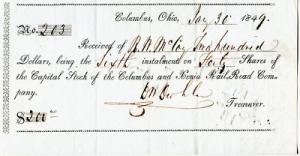 Columbus, Ohio, Jany 30 1849.
No. 213
Received of R. W. McCoy Two hundred
Dollars, being the Sixth instalment on Forty Shares of
the Capital Stock of the Columbus and Xenia Rail Road Com-
pany.
Treasurer.
$200